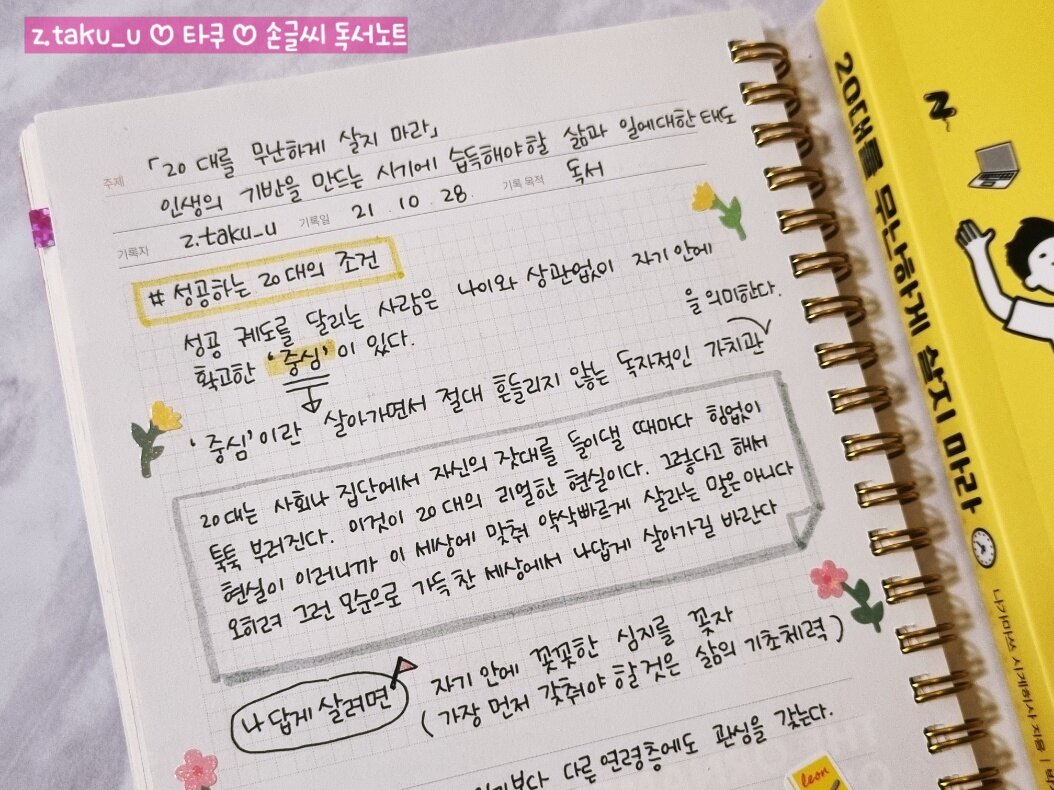 z.taku_u ♡ 타쿠 ♡ 손글씨 독서노트
주제
「20대를 무난하게 살지 마라」
인생의 기반을 만드는 시기에 습득해야할 삶과 일에대한 태도
기록자 z.taku_u 기록일 21. 10. 28 기록 목적 독서
# 성공하는 20대의 조건
성공 궤도를 달리는 사람은 나이와 상관없이 자기 안에
확고한 '중심'이 있다.
'중심'이란 살아가면서 절대 흔들리지 않는 독자적인 가치관
을 의미한다.
20대는 사회나 집단에서 자신의 잣대를 들이댈 때마다 힘없이
툭툭 부러진다. 이것이 20대의 리얼한 현실이다. 그렇다고 해서
현실이 이러니까 이 세상에 맞춰 약삭빠르게 살라는 말은아니다
오히려 그런 모순으로 가득 찬 세상에서 나답게 살아가길 바란다
나답게 살려면
자기 안에 꼿꼿한 심지를 꽂자
(가장 먼저 갖춰야 할것은 삶의 기초체력)
다른 연령층에도 관심을 갖는다.
leon
20대를 무난하게 살지 마라
나가마쓰 시게히사 지음